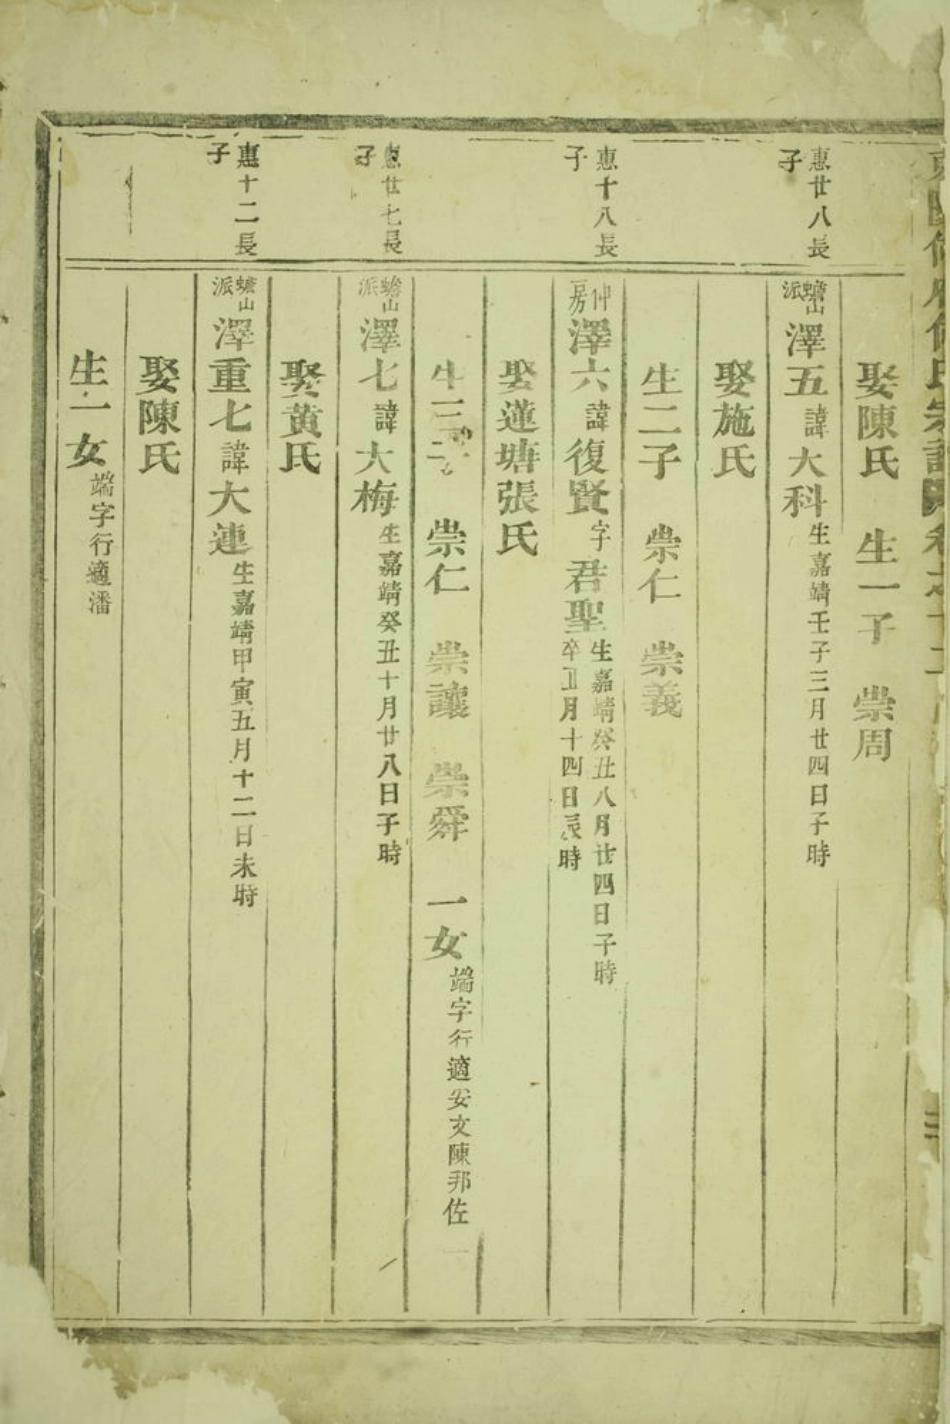 氏宗譜
娶陳氏 生一子 崇周
惠廿八長子
蟾山派 澤五 諱大科 生嘉靖壬子三月廿四日子時
娶施氏
生二子 崇仁 崇義
惠十八長子
仲房 澤六 諱復賢 字君聖 生嘉靖癸丑八月廿四日子時
卒 月十四日辰時
娶蓮塘張氏
生三子 崇仁 崇讓 崇舜 一女 端字行適安文陳邦佐
惠廿七長子
蟾山派 澤七 諱大梅 生嘉靖癸丑十月廿八日子時
娶黃氏
惠十二長子
蟾山派 澤重七 諱大連 生嘉靖甲寅五月十二日未時
娶陳氏
生一女 端字行適潘